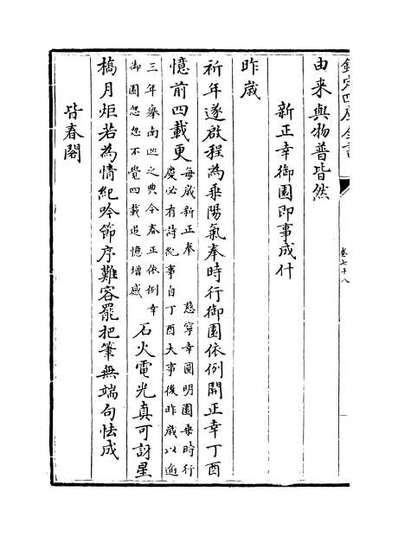 欽定四庫全書
卷七十八
由来與物普皆然
新正幸御園即事成什
昨歳
祈年遂啟程為乗陽氣奉時行御園依例開正幸丁酉
憶前四載更
每歳新正奉 慈寧幸圓明園乗時行
慶必有詩紀事自丁酉大事後昨歳以逾
三年舉南巡之典今春正依例幸
御園忽忽不覺四載追憶增感
石火電光真可訝星
橋月炬若為情紀吟節序難容罷把筆無端句怯成
皆春閣